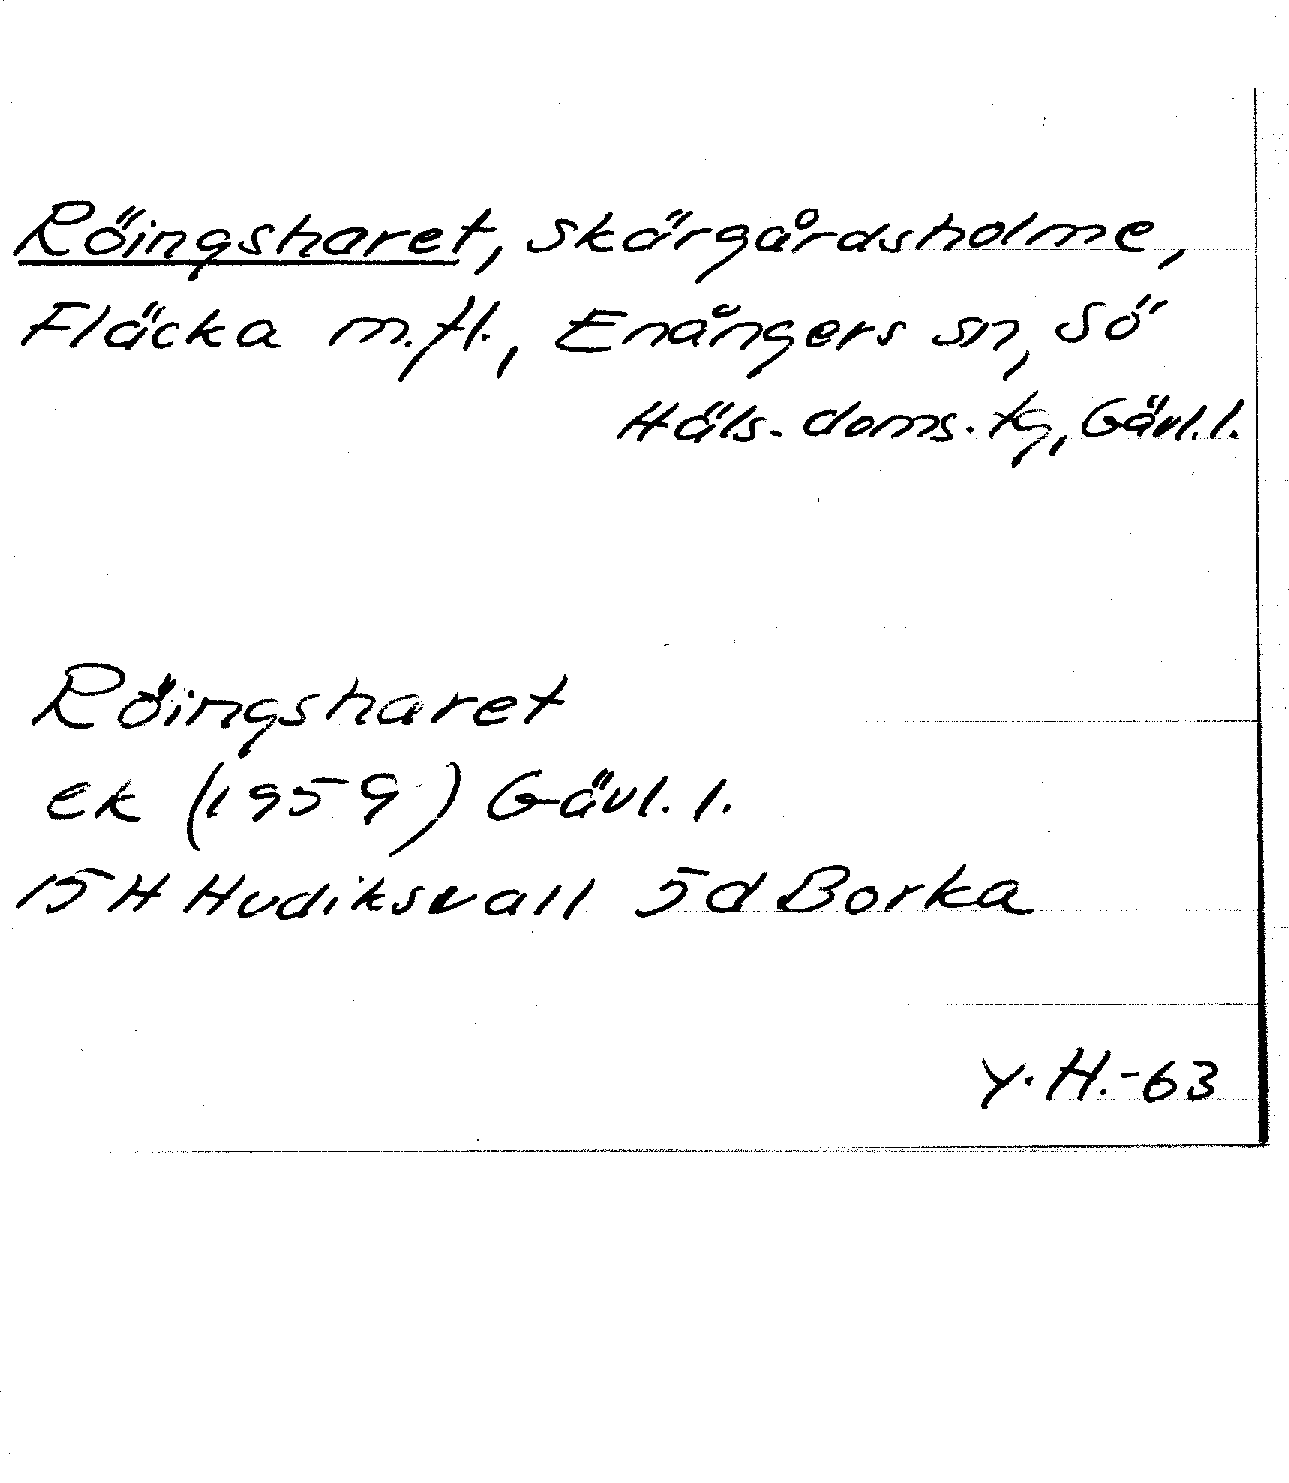 Röingsharet, skärgårdsholme,
Fläcka m.fl., Enångers sn, Sö
Häls. doms. tg, Gävl.l.
Röingsharet
ek (1959) Gävl. l.
15H Hudiksvall 5d Borka
Y.H.-63